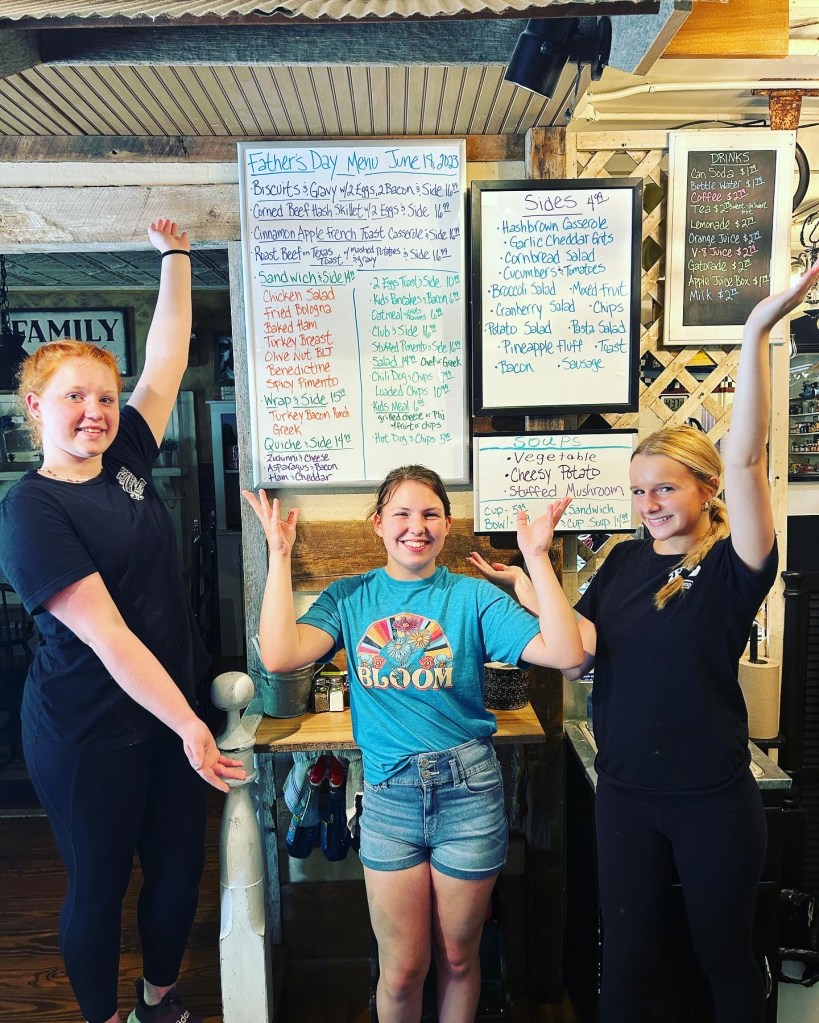 Father's Day Menu June 18, 2023
Biscuits & Gravy w/2 Eggs, 2 Bacon & Side 16
Corned Beef Hash Skillet w/2 Eggs & Side 16
Cinnamon Apple French Toast Casserole & Side 16
Roast Beef on Texas Toast w/ Mashed Potatoes & gravy 16
Sandwich & Side 14
Chicken Salad
Fried Bologna
Baked Ham
Turkey Breast
Olive Nut BLT
Benedictine
Spicy Pimento
Wrap & Side 15
Turkey Bacon Ranch
Greek
Quiche & Side 14
Zucchini & Cheese
Asparagus & Bacon
Ham & Cheddar
2 Eggs Toast & Side 10
Kids Pancakes & Bacon 6
Oatmeal
Club & Side 16
Stuffed Pimento & Side 16
Salad 14 Chef or Greek
Chili Dog & Chips
Loaded Chips 10
Kids Meal 6
grilled cheese or PBJ
& fruit or chips
Hot Dog & Chips
Sides 4.99
Hashbrown Casserole
Garlic Cheddar Grits
Cornbread Salad
Cucumbers & Tomatoes
Broccoli Salad • Mixed Fruit
Cranberry Salad • Chips
Potato Salad • Pasta Salad
Pineapple Fluff • Toast
Bacon • Sausage
Soups
Vegetable
Cheesy Potato
Stuffed Mushroom
Cup
Bowl
Sandwich
& Cup Soup 14
DRINKS
Can Soda
Bottle Water
Coffee
Tea
Lemonade
Orange Juice
V-8 Juice
Gatorade
Apple Juice Box
Milk
FAMILY
BLOOM